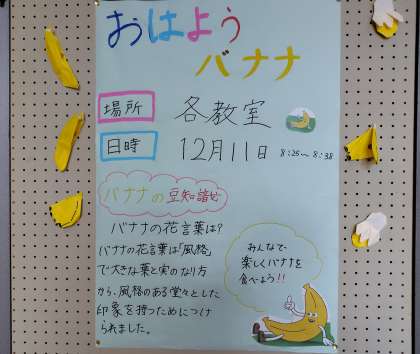 おはよう
バナナ
場所 各教室
日時 12月11日 8:25～8:38
バナナの豆知識
バナナの花言葉は?
バナナの花言葉は「風格」
で大きな葉と実のなり方
から、風格のある堂々とした
印象を持つためにつけ
られました。
みんなで
楽しくバナナを
食べよう!!